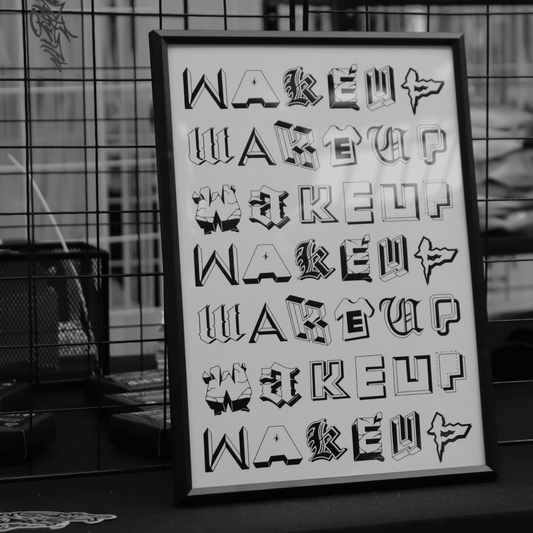 WAKEUP
WAKEUP
WAKEUP
WAKEUP
WAKEUP
WAKEUP
WAKEUP